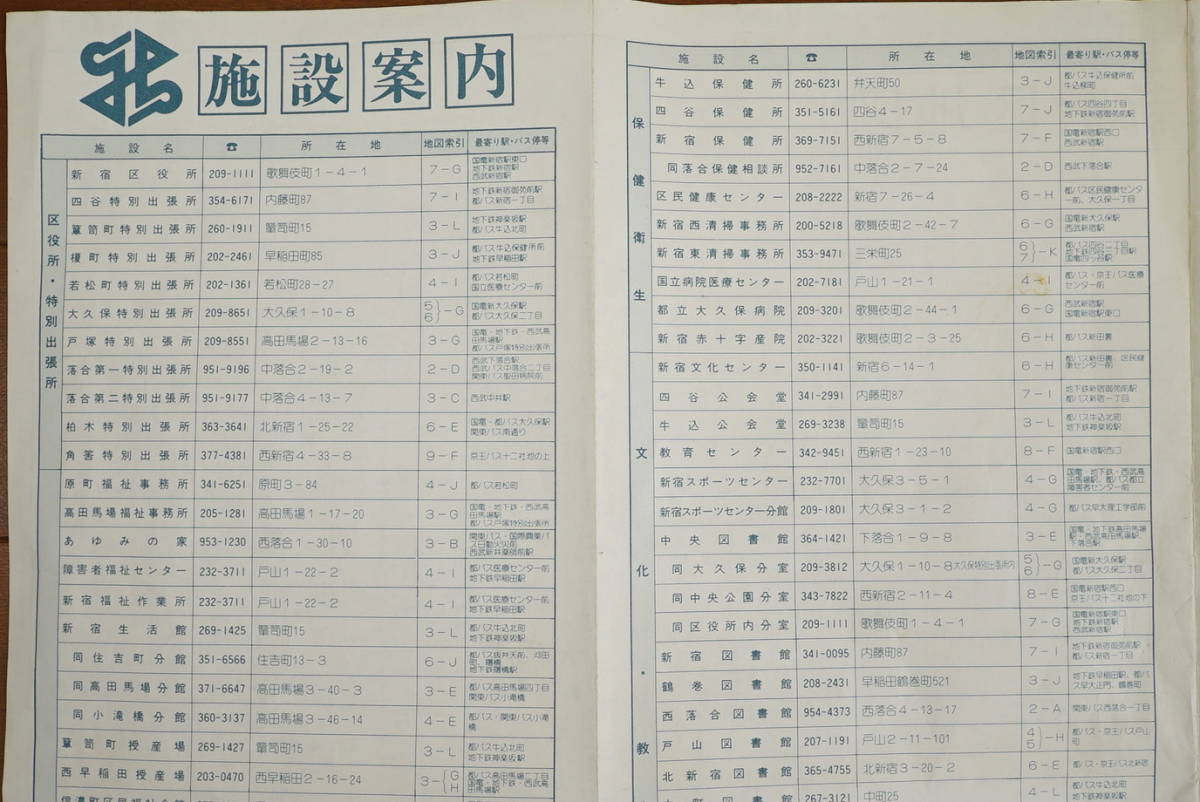 施設案内
施設名 ☎ 所在地 地図索引 最寄り駅・バス停等
区役所・特別出張所
新宿区役所 209-1111 歌舞伎町1-4-1 7-G 国電新宿駅東口 地下鉄新宿駅 西武新宿駅
四谷特別出張所 354-6171 内藤町87 7-I 地下鉄新宿御苑前駅 都バス新宿一丁目
簞笥町特別出張所 260-1911 簞笥町15 3-L 地下鉄神楽坂駅 都バス牛込北町
榎町特別出張所 202-2461 早稲田町85 3-J 都バス牛込保健所前 地下鉄早稲田駅
若松町特別出張所 202-1361 若松町28-27 4-I 都バス若松町 国立医療センター前
大久保特別出張所 209-8651 大久保1-10-8 5 6}-G 国電新大久保駅 都バス大久保二丁目
戸塚特別出張所 209-8551 高田馬場2-13-16 3-G 国電・地下鉄・西武高田馬場駅 都バス戸塚特別出張所
落合第一特別出張所 951-9196 中落合2-19-2 2-D 西武下落合駅 西武バス中落合二丁目 関東バス聖母病院前
落合第二特別出張所 951-9177 中落合4-13-7 3-C 西武中井駅
柏木特別出張所 363-3641 北新宿1-25-22 6-E 国電・都バス大久保駅 関東バス南通り
角筈特別出張所 377-4381 西新宿4-33-8 9-F 京王バス十二社池の上
原町福祉事務所 341-6251 原町3-84 4-J 都バス若松町
高田馬場福祉事務所 205-1281 高田馬場1-17-20 3-G 国電・地下鉄・西武高田馬場駅 都バス戸塚特別出張所
あゆみの家 953-1230 西落合1-30-10 3-B 関東バス・国際興業バス日動火災前 西武新井薬師前駅
障害者福祉センター 232-3711 戸山1-22-2 4-I 都バス医療センター前 地下鉄早稲田駅
新宿福祉作業所 232-3711 戸山1-22-2 4-I 都バス医療センター前 地下鉄早稲田駅
新宿生活館 269-1425 簞笥町15 3-L 都バス牛込北町 地下鉄神楽坂駅
同住吉町分館 351-6566 住吉町13-3 6-J 都バス抜弁天前、河田町、曙橋 地下鉄曙橋駅
同高田馬場分館 371-6647 高田馬場3-40-3 3-E 都バス高田馬場四丁目 関東バス小滝橋
同小滝橋分館 360-3137 高田馬場3-46-14 4-E 都バス・関東バス小滝橋
簞笥町授産場 269-1427 簞笥町15 3-L 都バス牛込北町 地下鉄神楽坂駅
西早稲田授産場 203-0470 西早稲田2-16-24 3-{G H 都バス高田馬場二丁目 国電・地下鉄・西武高田馬場駅
信濃町区民福祉会館
施設名 ☎ 所在地 地図索引 最寄り駅・バス停等
保健衛生
牛込保健所 260-6231 弁天町50 3-J 都バス牛込保健所前 牛込柳町
四谷保健所 351-5161 四谷4-17 7-J 都バス四谷四丁目 地下鉄新宿御苑前駅
新宿保健所 369-7151 西新宿7-5-8 7-F 国電新宿駅西口 西武新宿駅
同落合保健相談所 952-7161 中落合2-7-24 2-D 西武下落合駅
区民健康センター 208-2222 新宿7-26-4 6-H 都バス区民健康センター前、大久保一丁目
新宿西清掃事務所 200-5218 歌舞伎町2-42-7 6-G 国電新大久保駅 西武新宿駅
新宿東清掃事務所 353-9471 三栄町25 6 7}-K 都バス四谷二丁目 地下鉄四谷三丁目駅 国電四ッ谷駅
国立病院医療センター 202-7181 戸山1-21-1 4-I 都バス・京王バス医療センター前
都立大久保病院 209-3201 歌舞伎町2-44-1 6-G 西武新宿駅 国電新宿駅東口
新宿赤十字産院 202-3221 歌舞伎町2-3-25 6-H 都バス新田裏
文化・教
新宿文化センター 350-1141 新宿6-14-1 6-H 都バス新田裏、区民健康センター前
四谷公会堂 341-2991 内藤町87 7-I 地下鉄新宿御苑前駅 都バス新宿一丁目
牛込公会堂 269-3238 簞笥町15 3-L 都バス牛込北町 地下鉄神楽坂駅
教育センター 342-9451 西新宿1-23-10 8-F 国電新宿駅西口
新宿スポーツセンター 232-7701 大久保3-5-1 4-G 国電・地下鉄・西武高田馬場駅、都バス都立障害者センター前
新宿スポーツセンター分館 209-1801 大久保3-1-2 4-G 都バス早大理工学部前
中央図書館 364-1421 下落合1-9-8 3-E 国電・地下鉄高田馬場駅・西武高田馬場駅、下落合駅
同大久保分室 209-3812 大久保1-10-8大久保特別出張所内 5 6}-G 国電新大久保駅 都バス大久保二丁目
同中央公園分室 343-7822 西新宿2-11-4 8-E 国電新宿駅西口 京王バス十二社池の下
同区役所内分室 209-1111 歌舞伎町1-4-1 7-G 国電新宿駅東口 地下鉄新宿駅 西武新宿駅
新宿図書館 341-0095 内藤町87 7-I 地下鉄新宿御苑前駅 都バス新宿一丁目
鶴巻図書館 208-2431 早稲田鶴巻町521 3-J 地下鉄早稲田駅、都バス早大正門、鶴巻町
西落合図書館 954-4373 西落合4-13-17 2-A 関東バス西落合一丁目
戸山図書館 207-1191 戸山2-11-101 4 5}-H 都バス・京王バス戸山町
北新宿図書館 365-4755 北新宿3-20-2 6-E 都バス・京王バス北新宿
町図書館 267-3121 中町25 4-L 都バス牛込北町 地下鉄神楽坂駅